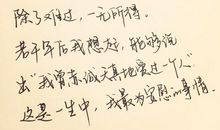 除了难过，一无所得。
若干年后我想起，能够说
出“我曾赤诚天真地爱过一个人”
这是一生中，我最为安慰的事情。